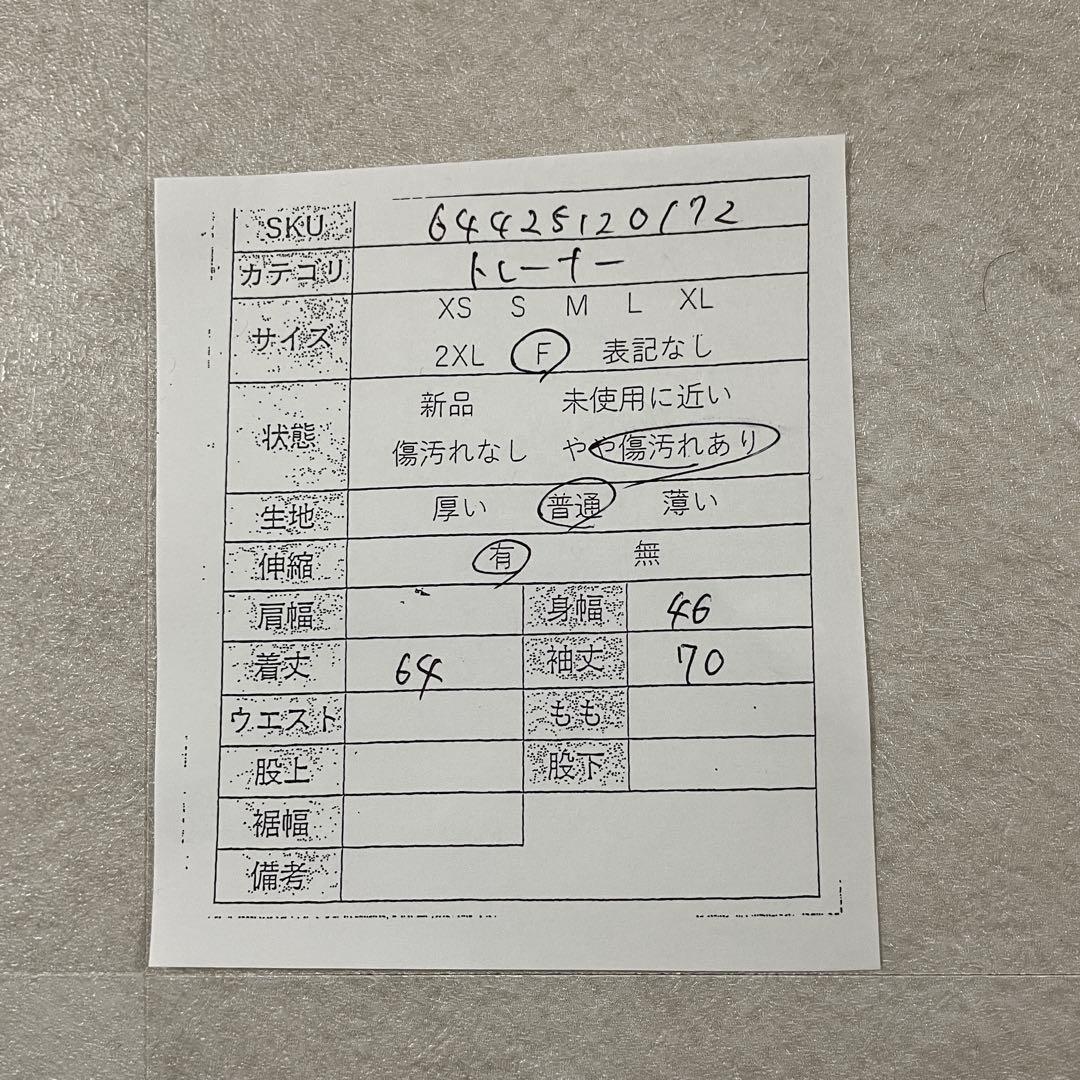 SKU 64425120172
カテゴリ トレーナー
サイズ XS S M L XL
2XL F 表記なし
状態 新品 未使用に近い
傷汚れなし やや傷汚れあり
生地 厚い 普通 薄い
伸縮 有 無
肩幅 身幅 46
着丈 64 袖丈 70
ウエスト もも
股上 股下
裾幅
備考